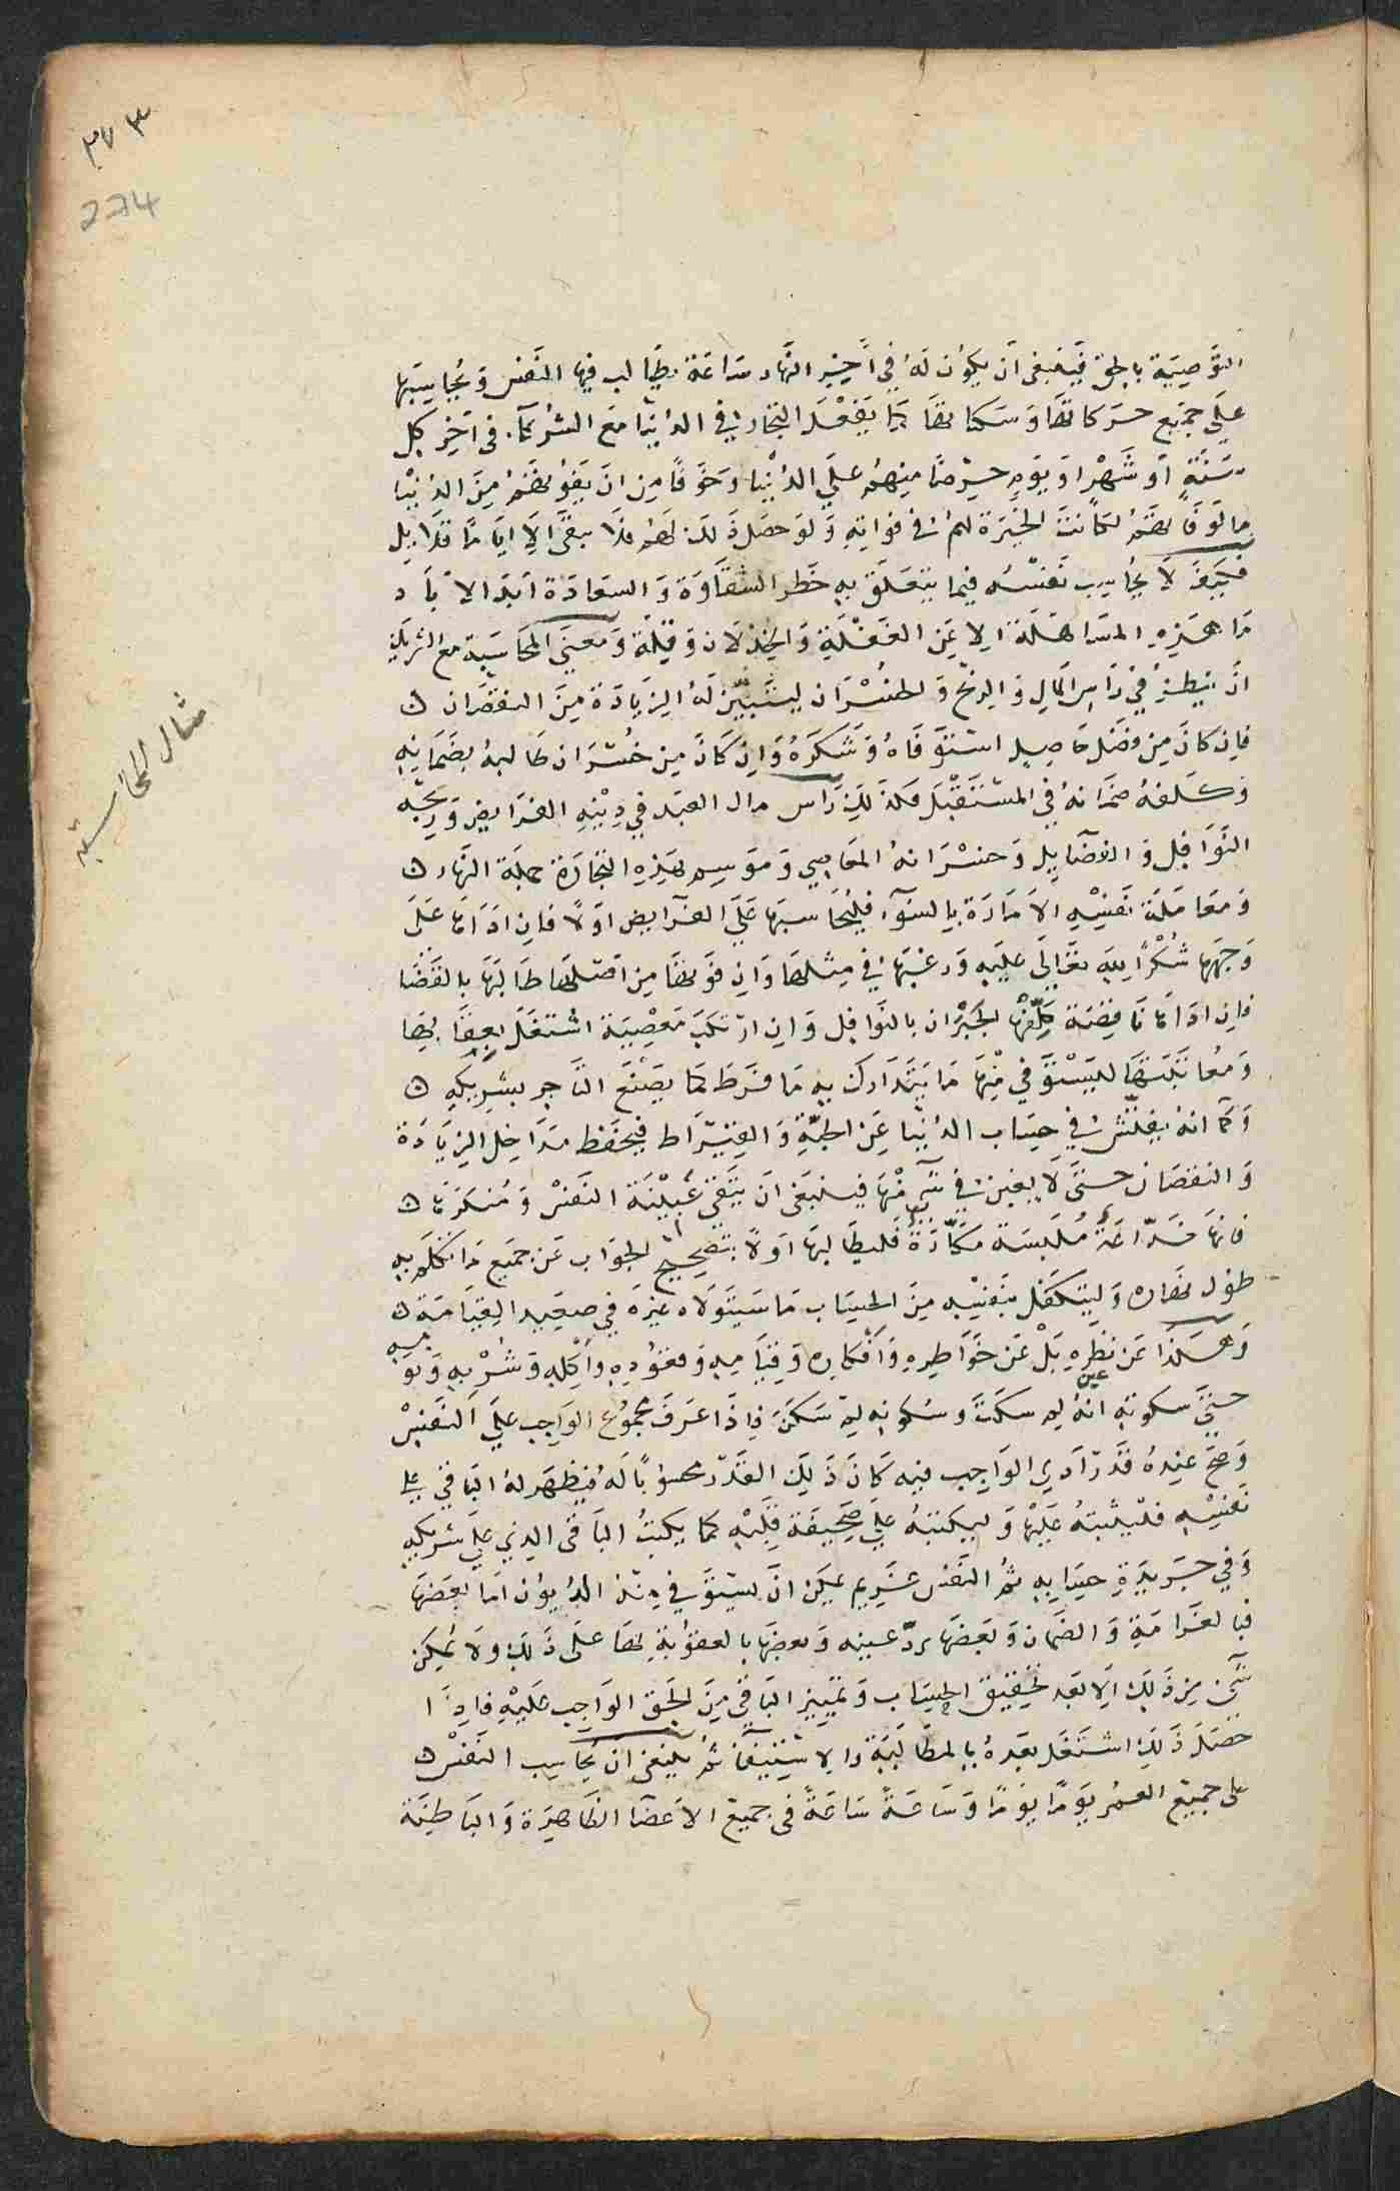 ٣٧٣
274
التوصية بالحق فينبغى ان يكون له في اخير النهار ساعة يطالب فيها النفس ويحاسبها
على جميع حركاتها وسكناتها كما يفعل التجار في الدنيا مع الشركآء في اخر كل
سنة او شهر او يوم حرصا منهم على الدنيا وخوفا من ان يفوتهم من الدنيا
ما لو فاتهم لكانت الخيرة لهم في فواته ولو حصل ذلك لهم فلا يبقى الا اياما قلايل
فكيف لا يحاسب نفسه فيما يتعلق به خطر الشقاوة والسعادة ابد الاباد
ما هذه المساهلة الا عن الغفلة والخذلان وقلة ومعنى المحاسبة مع الشريك
ان ينظر في راس المال والربح والخسران ليتبين له الزيادة من النقصان
فان كان من فضل حاصل استوفاه وشكره وان كان من خسران طالبه بضمانه
وكلفه ضمانه في المستقبل فكذلك راس مال العبد في دينه الفرايض وربحه
النوافل والفضايل وخسرانه المعاصي وموسم هذه التجارة جملة النهار
ومعاملة نفسه الامارة بالسوء فليحاسبها على الفرايض اولا فان اداها على
وجهها شكرا لله تعالى عليه ورغبها في مثلها وان فوتها من اصلها طالبها بالقضا
فان اداها ناقصة كلفها الجبران بالنوافل وان ارتكب معصية اشتغل بعقابها
ومعاتبتها ليستوفي منها ما يتدارك به ما فرط كما يصنع التاجر بشريكه
وكما انه يفتش في حساب الدنيا عن الحبة والقيراط فيحفظ مداخل الزيادة
والنقصان حتى لا يغبن في شيء منها فينبغى ان يتقى غبينة النفس ومنكرها
فانها خداعة ملبسة مكارة فليطالبها اولا بتصحيح الجواب عن جميع ما تكلم به
طول نهاره وليتكفل بنفسه من الحساب ما سيتولاه غيره في صعيد القيامة
وهكذا عن نظره بل عن خواطره وافكاره وقيامه وقعوده واكله وشربه ونومه
حتى عن سكوته انه لم سكت وسكونه لم سكن فاذا عرف مجموع الواجب على النفس
وصح عنده قدر ادي الواجب فيه كان ذلك القدر محسوبا له فيظهر له الباقي على
نفسه فليثبته عليها وليكتبه على صحيفة قلبه كما يكتب الباقى الذي على شريكه
وفي جريدة حسابه ثم النفس غريم يمكن ان يستوفي منه الديون اما بعضها
فبالغرامة والضمان وبعضها برد عينه وبعضها بالعقوبة لها على ذلك ولا يمكن
شى من ذلك الا بعد تحقيق الحساب وتمييز الباقى من الحق الواجب عليه فاذا
حصل ذلك اشتغل بعده بالمطالبة والاستيفآء ثم ينبغى ان يحاسب النفس
على جميع العمر يوما يوما وساعة ساعة فى جميع الاعضا الظاهرة والباطنة
مثال المحاسبة